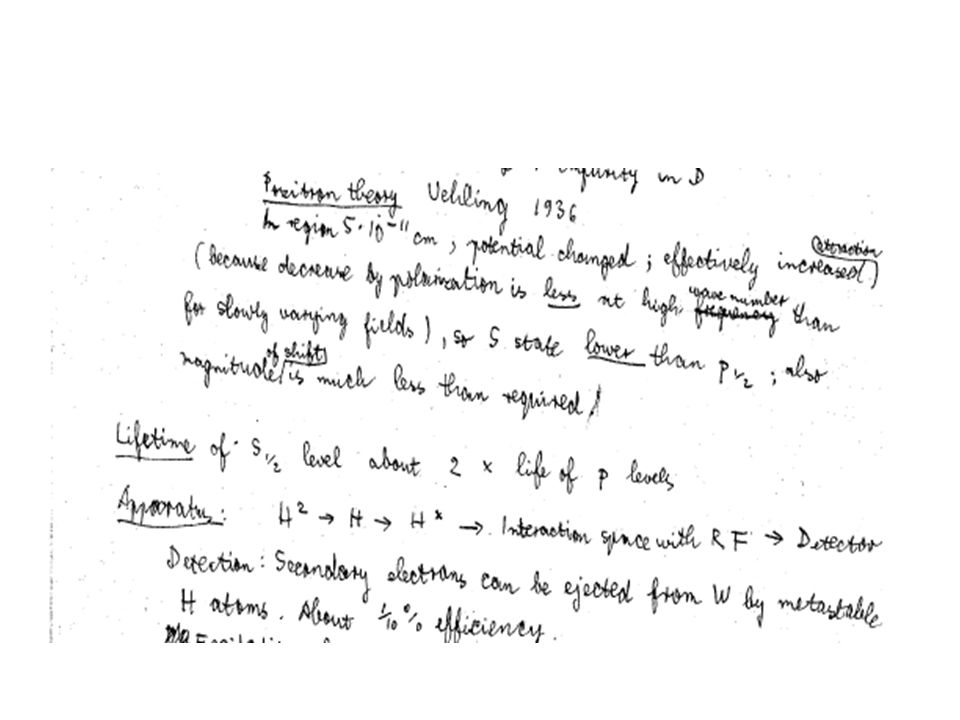 impurity in D
Positron theory Uehling 1936
In region 5·10⁻¹¹ cm, potential changed; effectively increased (attraction)
(because decrease by polarization is less at high wave number than
for slowly varying fields), so S state lower than P 1/2; also
magnitude of shift is much less than required!
Lifetime of S 1/2 level about 2 x life of p levels
Apparatus: H² → H → H* → Interaction space with RF → Detector
Detection: Secondary electrons can be ejected from W by metastable
H atoms. About 1/10 % efficiency.